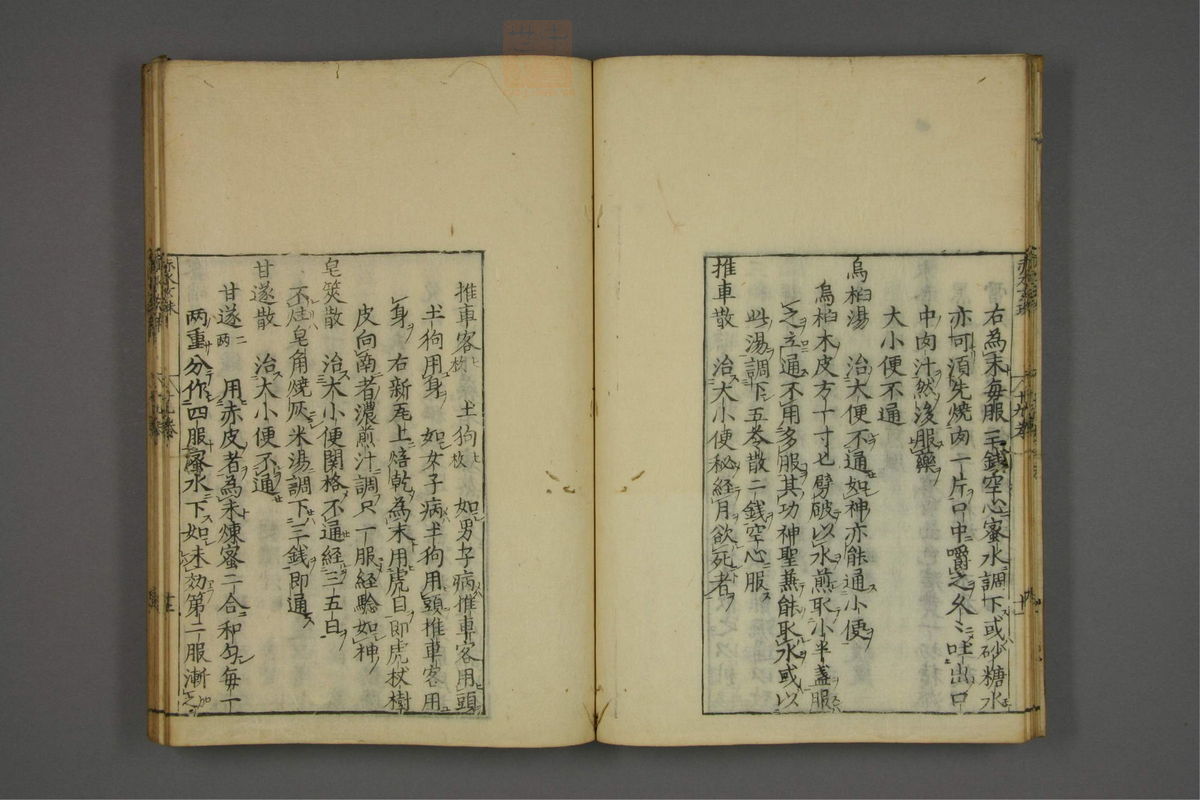 右為末每服三錢空心蜜水調下或砂糖水
亦可須先燒肉一片口中嚼之久〻吐出口
中肉汁然後服藥
大小便不通
烏桕湯　治大便不通如神亦能通小便
烏桕木皮方一寸七劈破以水煎取小半盞服
之立通不用多服其功神聖兼能取水或以
此湯調下五苓散二錢空心服
推車散　治大小便秘經月欲死者
推車客七枚　土狗七枚　如男子病推車客用頭
土狗用身　如女子病土狗用頭推車客用
身　右新瓦上焙乾為末用虎目即虎杖樹
皮向南者濃煎汁調只一服経驗如神
皂筴散　治大小便関格不通經三五日
不蛀皂角燒灰米湯調下三錢即通
甘遂散　治大小便不通
甘遂二兩　用赤皮者為末煉蜜二合和勻每一
兩重分作四服蜜水下如未効第二服漸之加
赤水玄珠